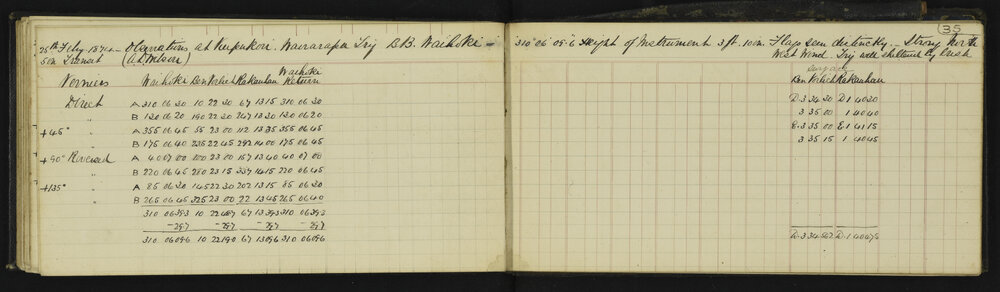 35
25th Feby. 1874 – Observations at Kupukori. Wairarapa Trig B.B. Waihoki – 310° 06' 09"6 Height of Instrument 3 ft. 10 in. Flags seen distinctly – Strong North
5 in Transit (A.D. Wilson) West Wind. Trig well sheltered by bush
Verniers Waihoki Ben Velich Rakauhau Waihoki Return
Ben Velich Rakauhau
Direct A 310 06 30 10 22 30 67 13 15 310 06 30 D. 3 34 30 D 1 40 30
" B 130 06 20 190 22 30 247 13 30 130 06 20 3 35 00 1 40 40
+45° " A 355 06 45 55 23 00 112 13 35 355 06 45 E. 3 35 00 E. 1 41 15
" B 175 06 40 235 22 45 292 14 00 175 06 45 3 35 15 1 40 45
+90° Reversed A 40 07 00 100 23 00 157 13 40 40 07 00
" B 220 06 45 280 23 15 337 14 15 220 06 45
+135° " A 85 06 30 145 22 30 202 13 15 85 06 30
" B 265 06 45 325 23 00 22 13 45 265 06 40
310 06 39.3 10 22 48.7 67 13 39.3 310 06 39.3
-29.7 -29.7 -29.7 -29.7
310 06 09.6 10 22 19.0 67 13 09.6 310 06 09.6 D. 1 40 47.5